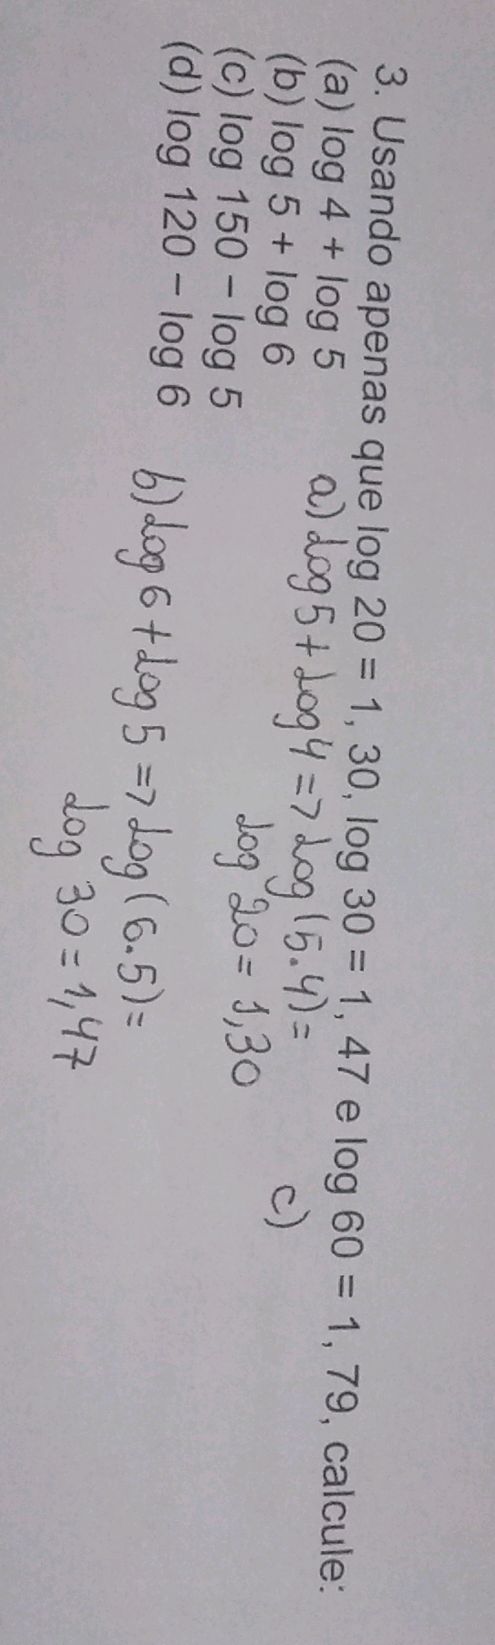 3. Usando apenas que log 20 = 1, 30, log 30 = 1, 47 e log 60 = 1, 79, calcule:
(a) log 4 + log 5
(b) log 5 + log 6
(c) log 150 − log 5
(d) log 120 − log 6
a) log 5 + log 4 => log (5.4) =
log 20 = 1,30
b) log 6 + log 5 => log (6.5) =
log 30 = 1,47
c)